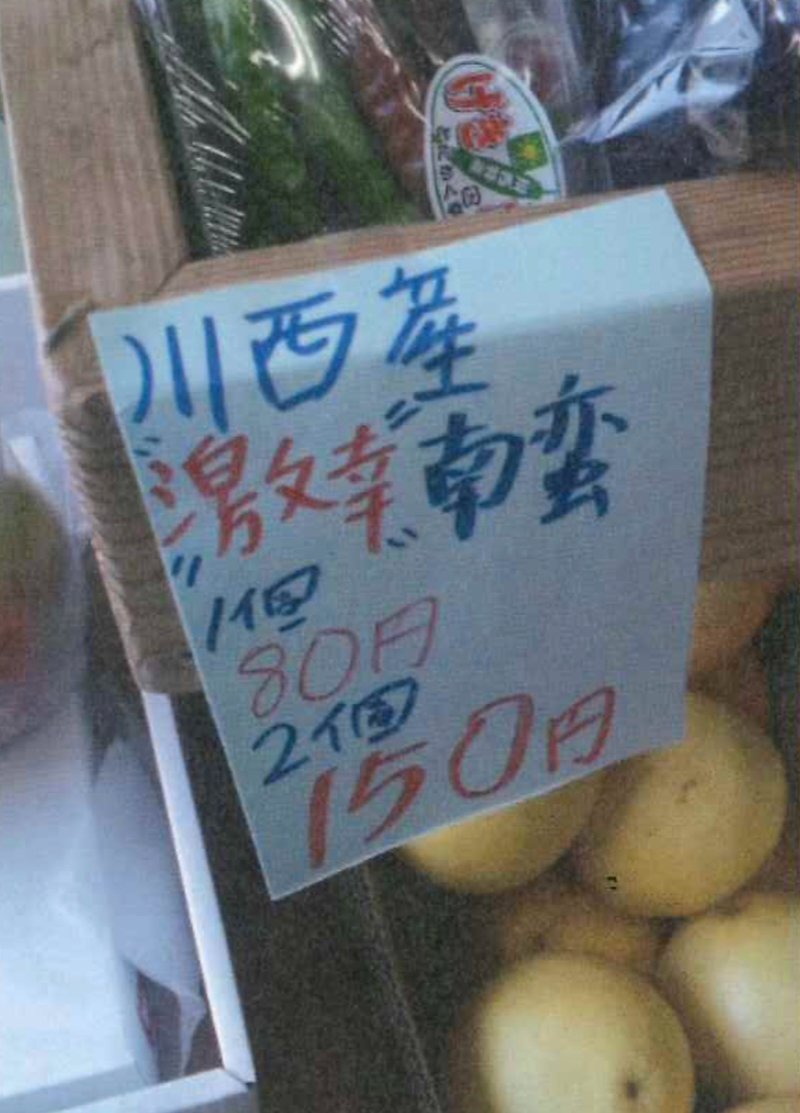 げき
川西産
"激辛"南蛮
"1個
80円
2個
150円